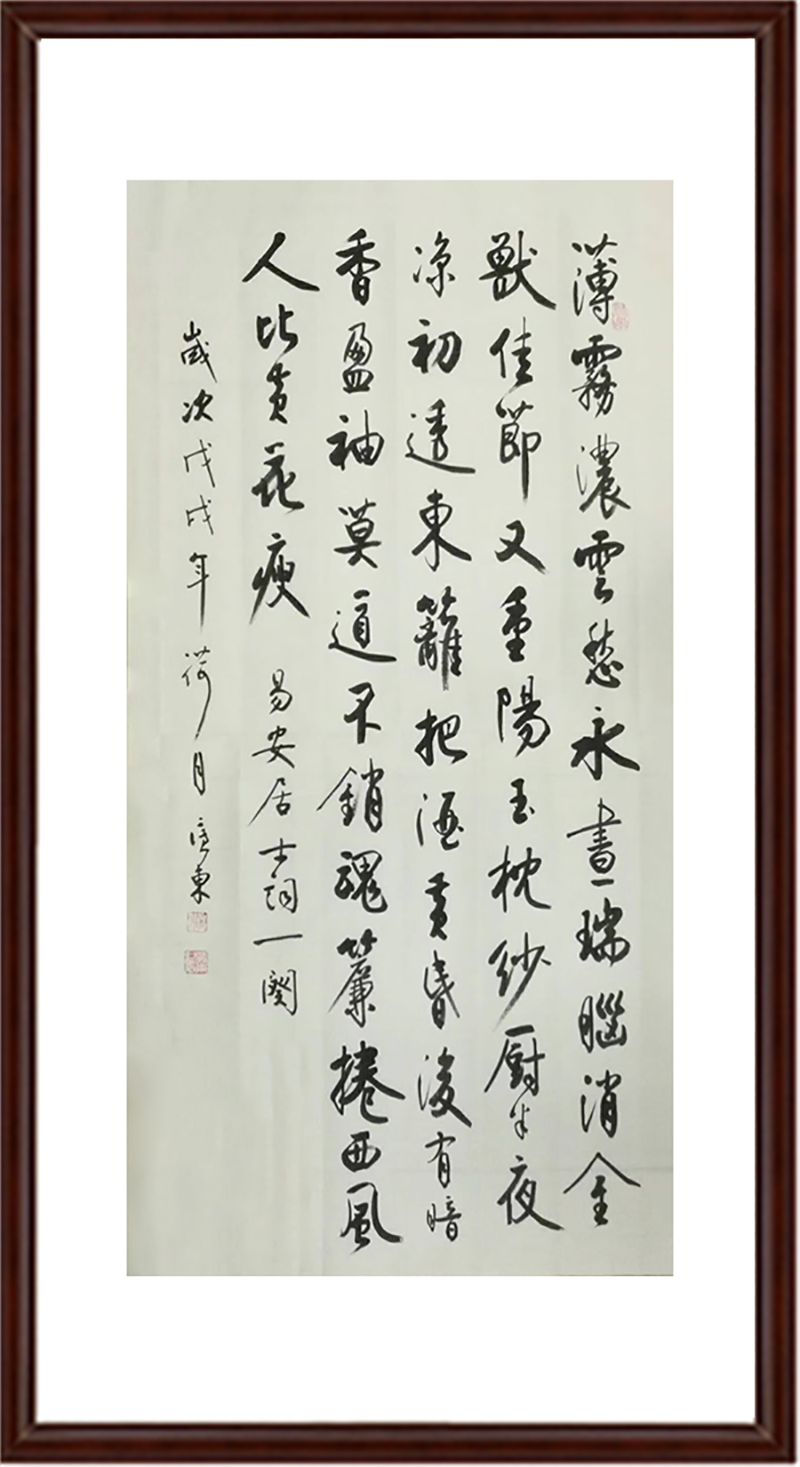 薄霧濃雲愁永晝瑞腦消金
獸佳節又重陽玉枕紗厨半夜
凉初透東籬把酒黄昏後有暗
香盈袖莫道不銷魂簾捲西風
人比黄花瘦 易安居士詞一闋
歲次戊戌年荷月